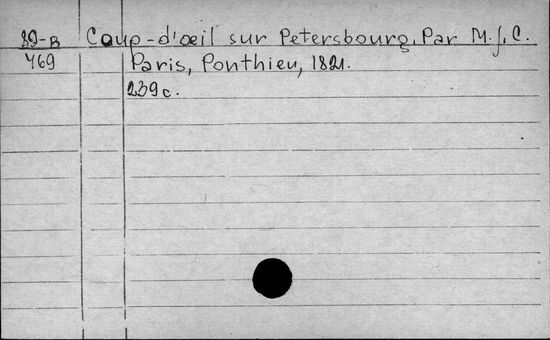 89-B Coup-d'œil sur Petersbourg, Par M. J. C.
469 Paris, Ponthieu, 1821.
239 c.